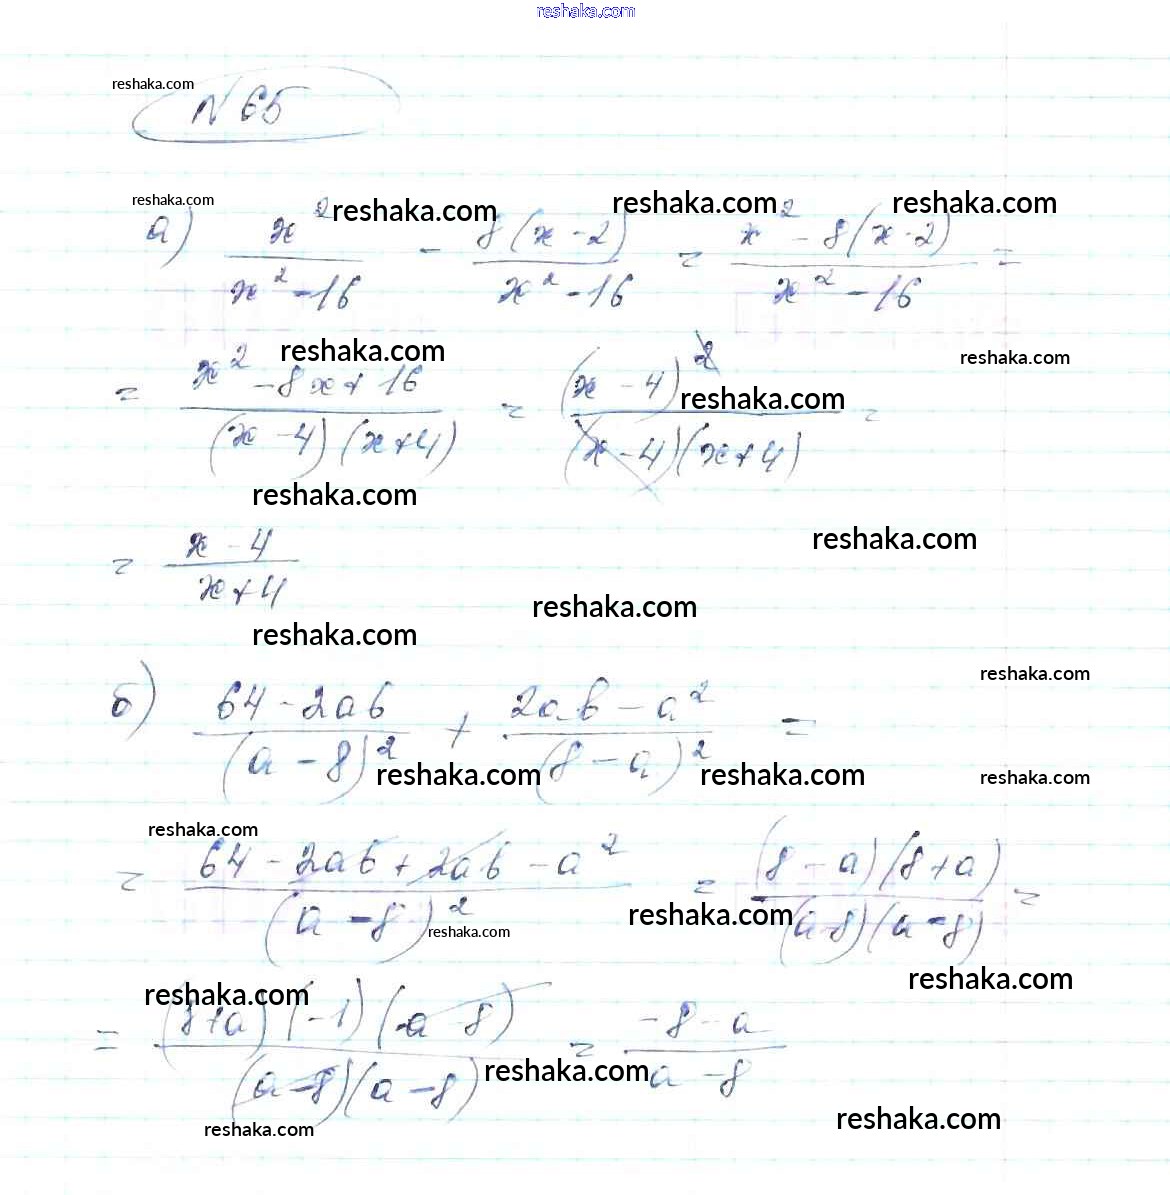 reshaka.com
reshaka.com
№ 65
reshaka.com reshaka.com reshaka.com reshaka.com
а) x²/(x² - 16) - 8(x - 2)/(x² - 16) = (x² - 8(x - 2))/(x² - 16) =
reshaka.com reshaka.com
= (x² - 8x + 16)/((x - 4)(x + 4)) = (x - 4)²/((x - 4)(x + 4)) =
reshaka.com
reshaka.com
reshaka.com
= (x - 4)/(x + 4)
reshaka.com
reshaka.com
reshaka.com
б) (64 - 2ab)/(a - 8)² + (2ab - a²)/(8 - a)² =
reshaka.com reshaka.com reshaka.com
reshaka.com
= (64 - 2ab + 2ab - a²)/(a - 8)² = (8 - a)(8 + a)/((a - 8)(a - 8)) =
reshaka.com reshaka.com
reshaka.com reshaka.com
= (8 + a)(-1)(a - 8)/((a - 8)(a - 8)) = (-8 - a)/(a - 8)
reshaka.com
reshaka.com
reshaka.com